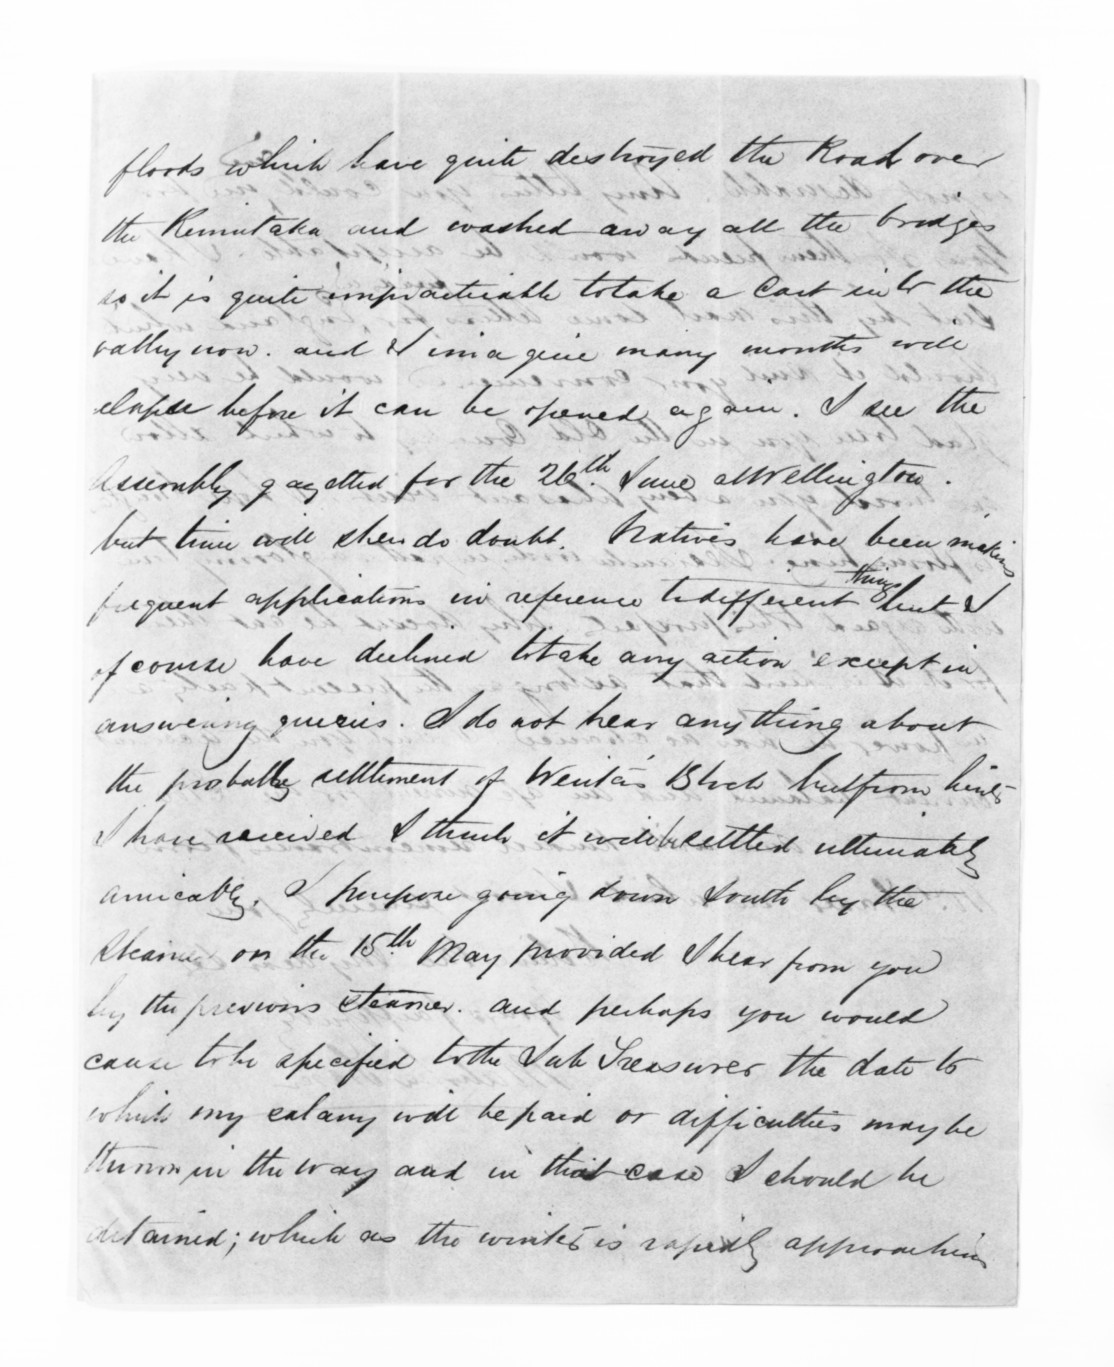 floods which have quite destroyed the Road over
the Remutaka and washed away all the bridges
so it is quite impracticable to take a Cart into the
valley now. and I imagine many months will
elapse before it can be opened again. I see the
Assembly gazetted for the 26th. June at Wellington.
but time will shew do doubt. Natives have been making
frequent applications in reference to different things but I
of course have declined to take any action except in
answering queries. I do not hear anything about
the probable settlement of Block but from hints
I have received I think it will be settled ultimately
amicably. I purpose going down South by the
Steamer on the 15th. May provided I hear from you
by the previous steamer. and perhaps you would
cause to be specified to the Sub Treasurer the date to
which my salary will be paid or difficulties may be
thrown in the way and in that case I should be
detained; which as the winter is rapidly approaching